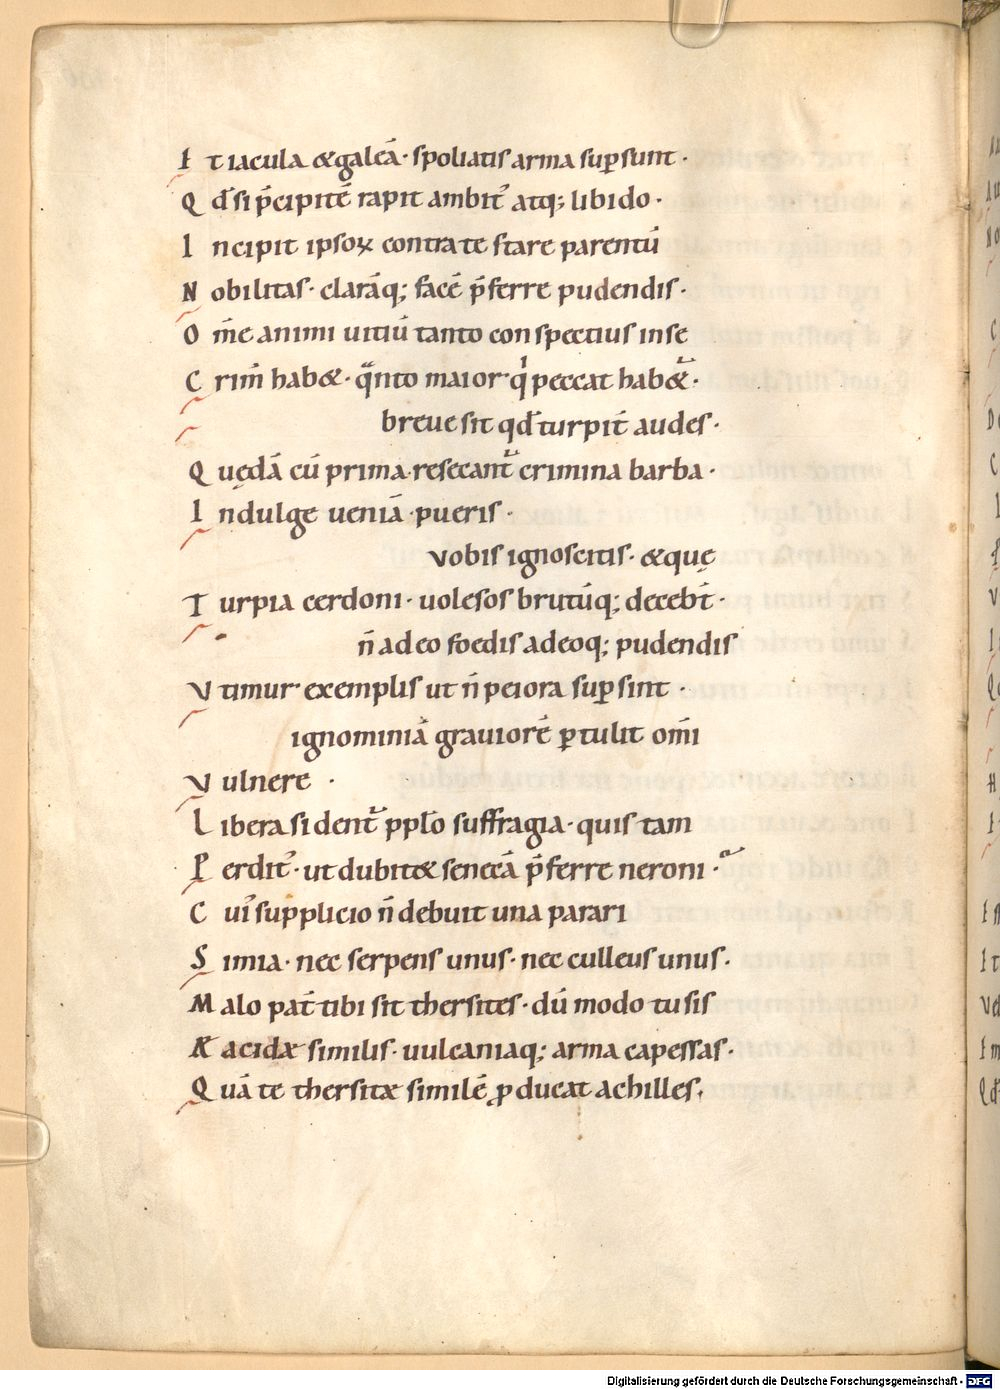 E t iacula &galeā· spoliatis arma sup̱sunt·
Q d̄ si p̄cipitē rapit ambit᷒ atq; libido·
I ncipit ipsoꝝ contra te stare parentū
N obilitas· clarāq; facē p̄ferre pudendis·
O m̄e animi uitiū tanto conspectius in se
C rim̄ hab&· qͣnto maior qͥ peccat hab&ᷣ·
breue sit qd̄ turpit̄ audes·
Q uędā cū prima resecantᷣ crimina barba·
I ndulge ueniā pueris·
vobis ignoscitis· &quę
T urpia cerdoni· uolesos brutūq; decebt̄·
n̄ adeo foedis adeoq; pudendis
V timur exemplis ut n̄ peiora sup̱sint·
ignominiā grauiorē ꝑtulit om̄i
V ulnere·
L ibera si dentᷣ ppl̄o suffragia· quis tam
P erdit᷒· ut dubit& senecā p̄ferre neroni·
C ui᷒ supplicio n̄ debuit una parari
S imia· nec serpens unus· nec culleus unus·
M alo pat̄ tibi sit thersites· dū modo tu sis
AE acidæ similis· uulcaniaq; arma capessas·
Q uā te thersitæ similē ꝓducat achilles·
Digitalisierung gefördert durch die Deutsche Forschungsgemeinschaft - DFG